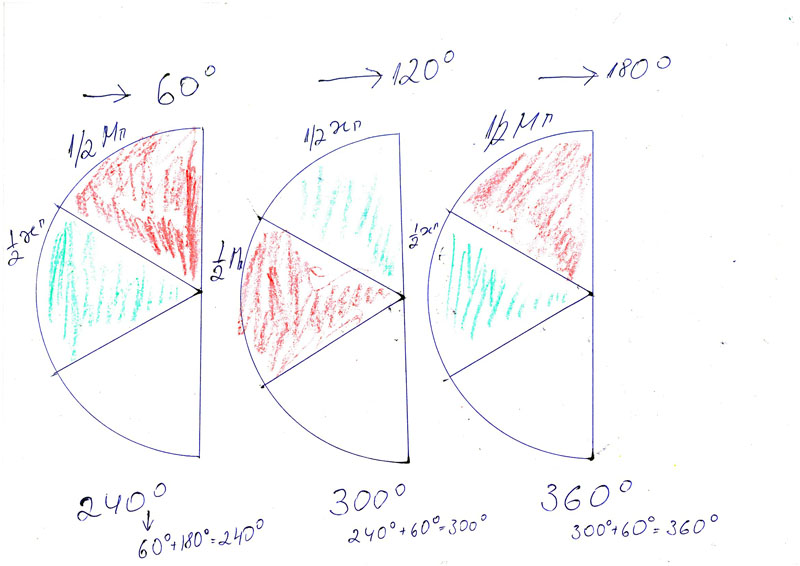 → 60°
→ 120°
→ 180°
1/2 Мп
1/2 жп
1/2 жп
1/2 Мп
1/2 Мп
1/2 жп
240°
60°+180°=240°
300°
240°+60°=300°
360°
300°+60°=360°